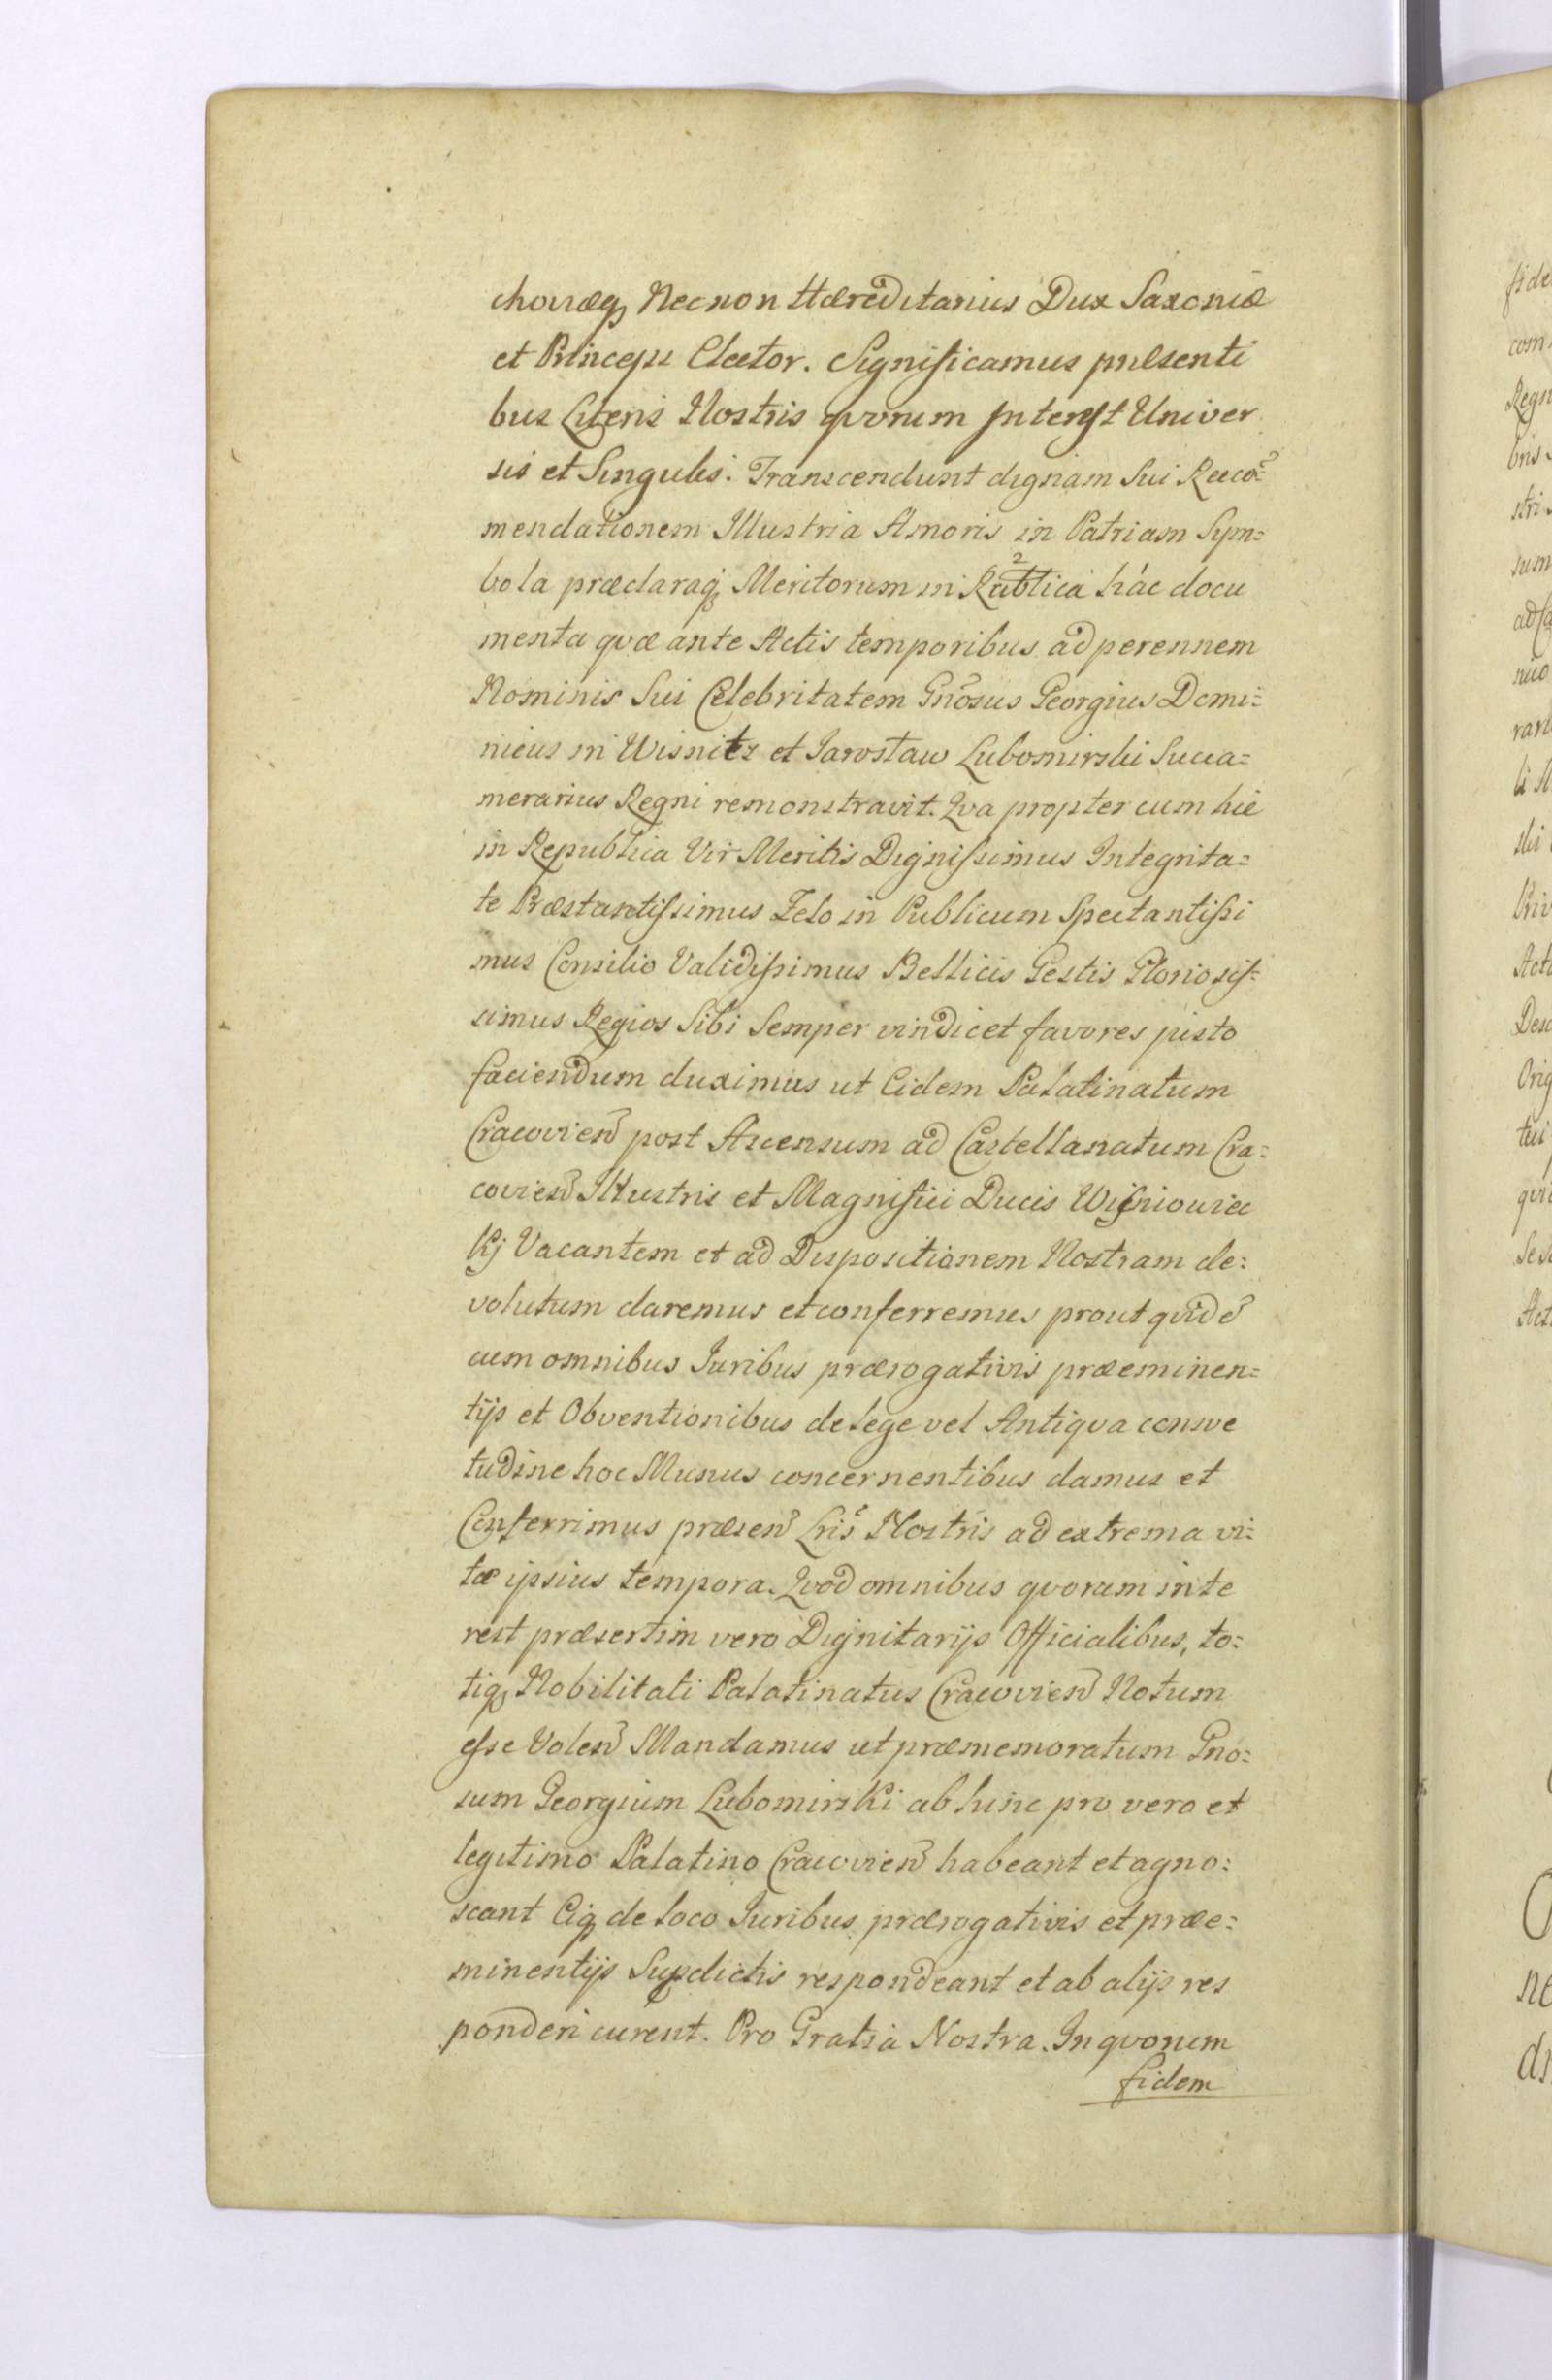 choviæq Necnon Hæreditarius Dux Saxoniæ
et Princeps Elector. Significamus præsenti
bus Literis Nostris qvorum Interest Univer
sis et Singulis. Transcendunt dignam Sui Reco=
mendationem Illustria Amoris in Patriam Sym=
bola præclaraq Meritorum in Rublica hác docu
menta qvæ ante Actis temporibus ad perennem
Nominis Sui Celebritatem Gnosus Georgius Domi=
nicus in Wisnitz et Jarosław Lubomirski Succa=
merarius Regni remonstravit. Qva propter cum hic
in Republica Vir Meritis Dignissimus Integrita=
te Præstantissimus Zelo in Publicum Spectantissi
mus Consilio Validissimus Bellicis Gestis Gloriosis=
simus Regios Sibi Semper vindicet favores justo
faciendum duximus ut Eidem Palatinatum
Cracovien post Ascensum ad Castellanatum Cra=
covien Illustris et Magnifici Ducis Wisniowiec
kj Vacantem et ad Dispositionem Nostram de=
volutum daremus et conferremus prout qvidē
cum omnibus Juribus prærogativis præeminen=
tijs et Obventionibus de lege vel Antiqva consve
tudine hoc Munus concernentibus damus et
Conferrimus præsen Lris Nostris ad extrema vi=
tæ ipsius tempora. Qvod omnibus qvorum inte
rest præsertim vero Dignitarijs Officialibus, to=
tiq Nobilitati Palatinatus Cracovien Notum
esse Volen Mandamus ut præmemoratum Gno=
sum Georgium Lubomirski ab hinc pro vero et
legitimo Palatino Cracovien habeant et agno=
scant Eiq de loco Juribus prærogativis et præe=
minentijs Supdictis respondeant et ab alijs res
ponderi curent. Pro Gratia Nostra. In qvorum
fidem